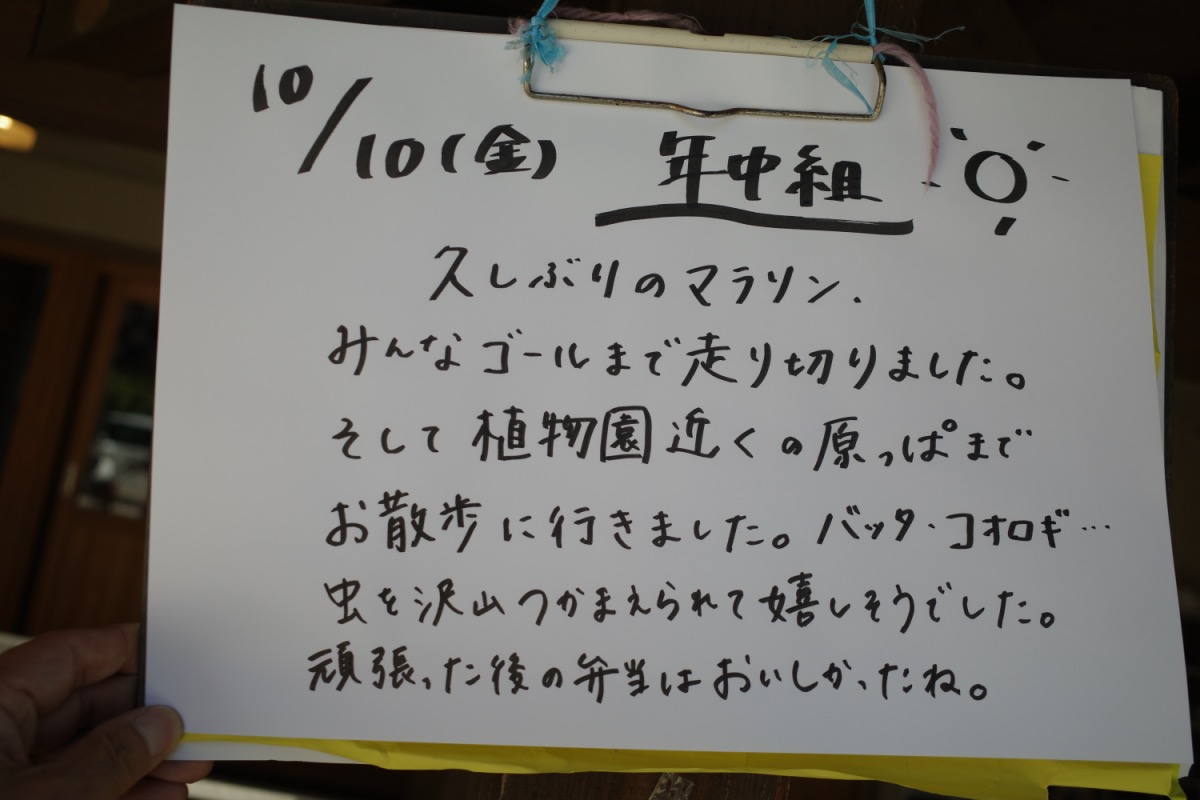 10/10(金) 年中組
久しぶりのマラソン.
みんなゴールまで走り切りました。
そして植物園近くの原っぱまで
お散歩に行きました。バッタ・コオロギ…
虫を沢山つかまえられて嬉しそうでした。
頑張った後の弁当はおいしかったね。